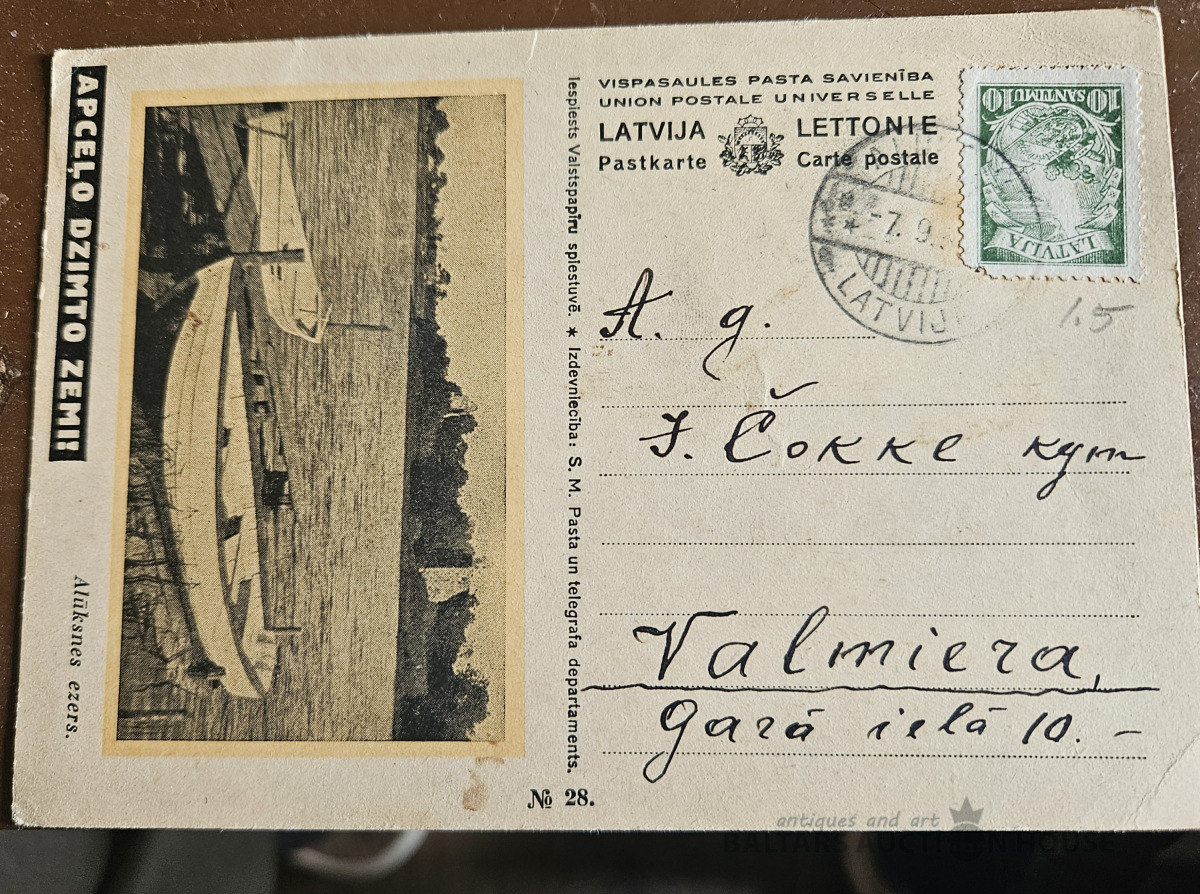 APCEĻO DZIMTO ZEMI!
Alūksnes ezers.
Iespiests Valstspapīru spiestuvē. * Izdevniecība: S. M. Pasta un telegrafa departaments.
№ 28.
VISPASAULES PASTA SAVIENĪBA
UNION POSTALE UNIVERSELLE
LATVIJA LETTONIE
Pastkarte Carte postale
10 SANTIMU 10
LATVIJA
7. 9.
LATVIJ
1.5
A. g.
J. Čokke kgm
Valmiera,
Garā ielā 10. –
antiques and art
BALTARS AUCTION HOUSE